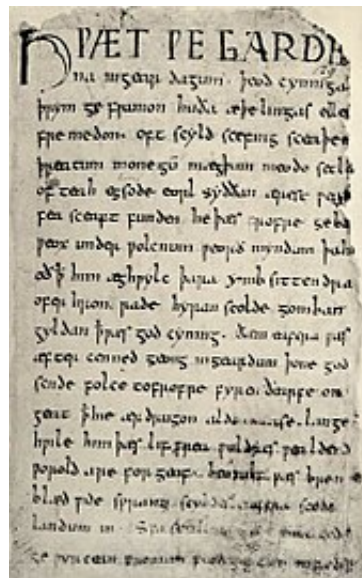 HǷÆT ǷE GARDE
na ingear dagum. þeod cyninga
þrym ge frunon huða æþelingas elle
fremedon. oft scyld scefing sceaþe
þreatum monegū mægþum meodo setla
of teah egsode eorl syððan ærest ƿear
fea sceaft funden he þæs frofre geba
ƿeox under ƿolcnum ƿeorð myndum þah
oð ꝥ him æghƿylc þara ymb sittendra
ofer hron rade hyran scolde gomban
gyldan ꝥ ƿæs god cyning. ðæm eafera ƿæs
æfter cenned geong ingeardum þone god
sende folce tofrofre fyren ðearfe on
geat ꝥ hie ær drugon aldor ase. lange
hƿile him þæs lif frea ƿuldres ƿealdend
ƿorold are for geaf. beoƿulf ƿæs breme
blæd ƿide sprang scyldes eafera scede
landum in. Sƿa sceal gode
ge ƿyrcean fromum feoh giftum